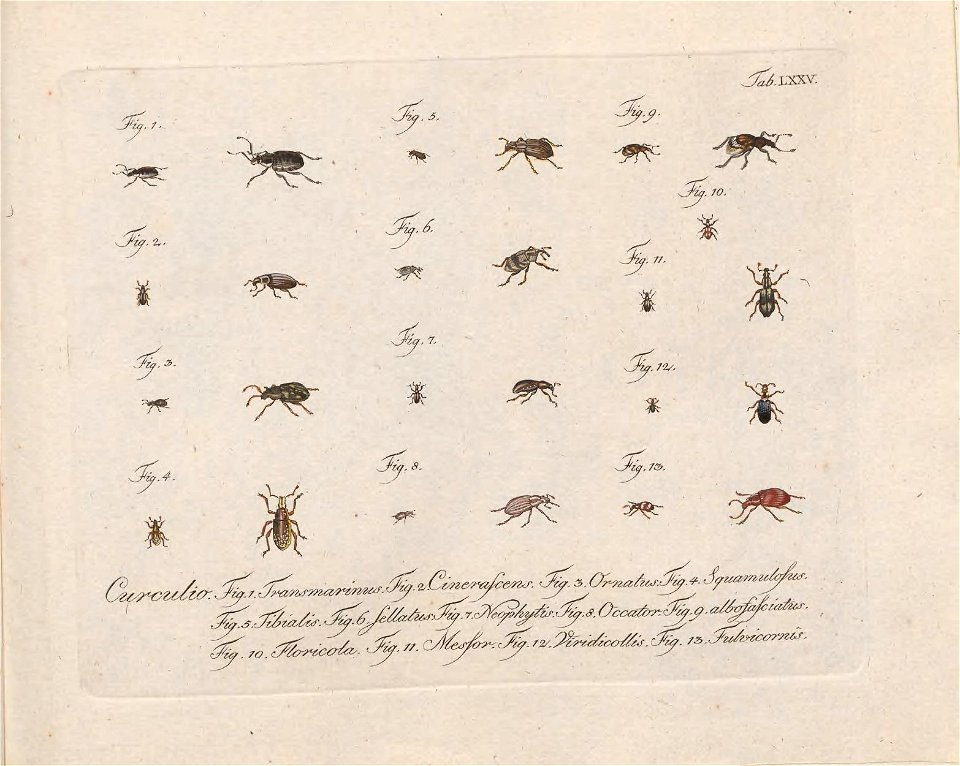 Tab. LXXV.
Fig. 1.
Fig. 5.
Fig. 9.
Fig. 10.
Fig. 2.
Fig. 6.
Fig. 11.
Fig. 3.
Fig. 7.
Fig. 12.
Fig. 4.
Fig. 8.
Fig. 13.
Curculio. Fig. 1. Transmarinus. Fig. 2. Cineraſcens. Fig. 3. Ornatus. Fig. 4. Squamuloſus.
Fig. 5. Tibialis. Fig. 6. ſellatus. Fig. 7. Neophytis. Fig. 8. Occator. Fig. 9. albofaſciatus.
Fig. 10. Floricola. Fig. 11. Meſsor. Fig. 12. Viridicollis. Fig. 13. Fulvicornis.